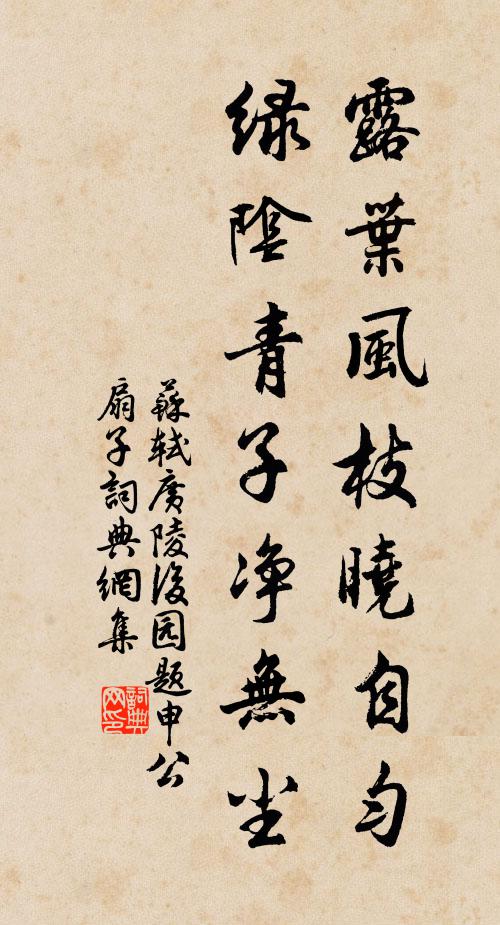 露葉風枝曉自勻
綠陰青子净無尘
蘇軾廣陵後园題申公
扇子詞典網集
詞典网印